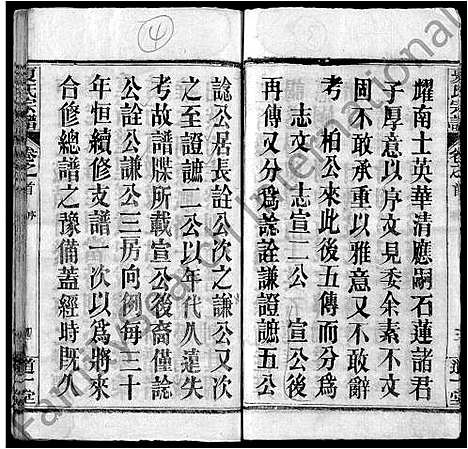 耀南士英華清應嗣石蓮諸君
子厚意以序文見委余素不文
固不敢承重以雅意又不敢辭
考 柏公來此後五傳而分為
志文 志宣二公 宣公後
再傳又分為諗詮謙證謶五公
三 道一堂
④
諗公居長詮公次之謙公又次
之至證謶二公以年代久遠失
考故譜牒所載宣公後裔僅諗
公詮公謙公三房向例每三十
年恒續修支譜一次以為將來
合修總譜之豫備蓋經時既久
夏氏宗譜 卷之首 序 四 道一堂
Family Search International